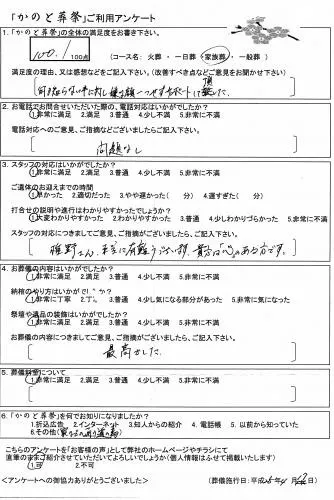 「かのと葬祭」ご利用アンケート
1.「かのと葬祭」の全体の満足度をお書き下さい。
100.1 100点 (コース名: 火葬 ・ 一日葬 ・ 家族葬 ・ 一般葬)
満足度の理由、又は感想などをご記入下さい。(改善すべき点などご意見をお聞かせ下さい)
2.お電話でお問合せいただいた際の、電話対応はいかがでしたか?
1.非常に満足 2.満足 3.普通 4.少し不満 5.非常に不満
電話対応へのご意見、ご指摘などございましたらご記入下さい。
問題なし
3.スタッフの対応はいかがでしたか?
1.非常に満足 2.満足 3.普通 4.少し不満 5.非常に不満
ご遺体のお迎えまでの時間
1.早かった 2.適切だった 3.やや遅かった( 分) 4.遅すぎた( 分)
打合せの説明や進行はわかりやすかったでしょうか?
1.大変わかりやすかった 2.わかりやすかった 3.普通 4.少しわかりづらかった 5.非常に不満
スタッフの対応につきましてご意見、ご指摘がございましたらご記入下さい。
4.お葬儀の内容はいかがでしたか?
1.非常に満足 2.満足 3.普通 4.少し不満 5.非常に不満
納棺のやり方はいかがでしたか?
1.非常に丁寧 2.丁寧 3.普通 4.少し気になる部分があった 5.非常に気になった
祭壇や遺品の装飾はいかがでしたか?
1.非常に満足 2.満足 3.普通 4.少し不満 5.非常に不満
お葬儀の内容につきましてご意見、ご指摘がございましたら、ご記入下さい。
最高でした。
5.葬儀料金について
1.非常に満足 2.満足 3.普通 4.少し不満 5.非常に不満
6.「かのと葬祭」を何でお知りになりましたか?
1.折込広告 2.インターネット 3.知人からの紹介 4.電話帳 5.以前から知っていた
6.その他(
こちらのアンケートを「お客様の声」として弊社のホームページやチラシにて
直筆のままご紹介させていただいてよろしいでしょうか(個人情報はふせて掲載いたします)
1.可 2.不可
<アンケートへの御協力ありがとうございました> (葬儀施行日:平成